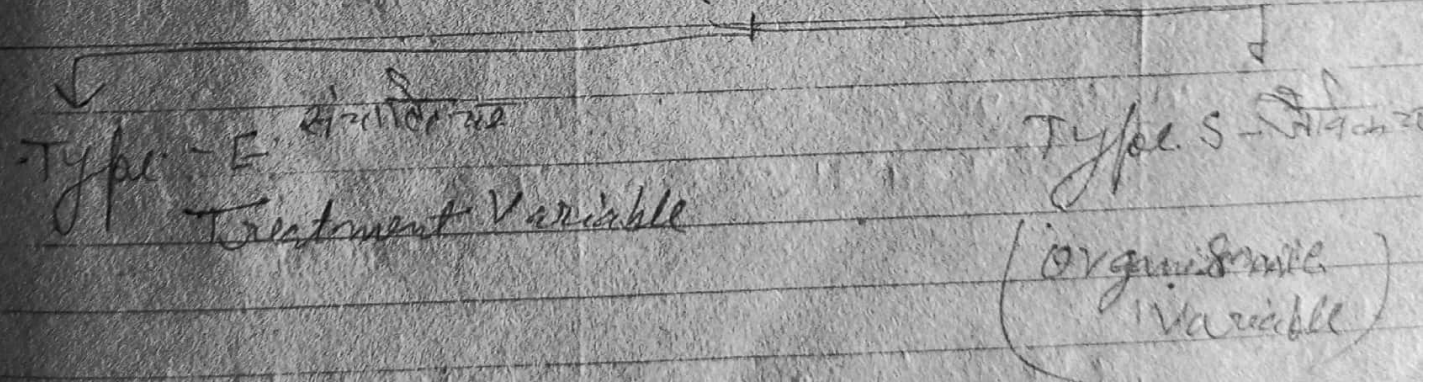 Type - E
Treatment Variable
Type S -
(Organismic
Variable)